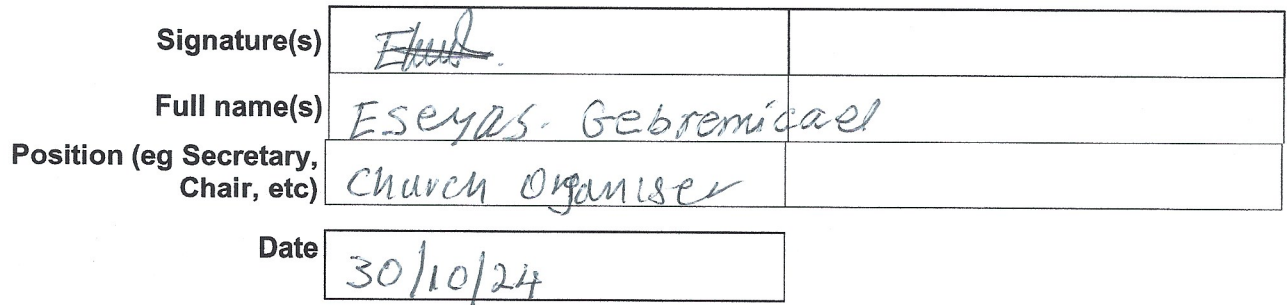 Signature(s)
Full name(s) Eseyas. Gebremicael
Position (eg Secretary,
Chair, etc) Church Organiser
Date 30/10/24